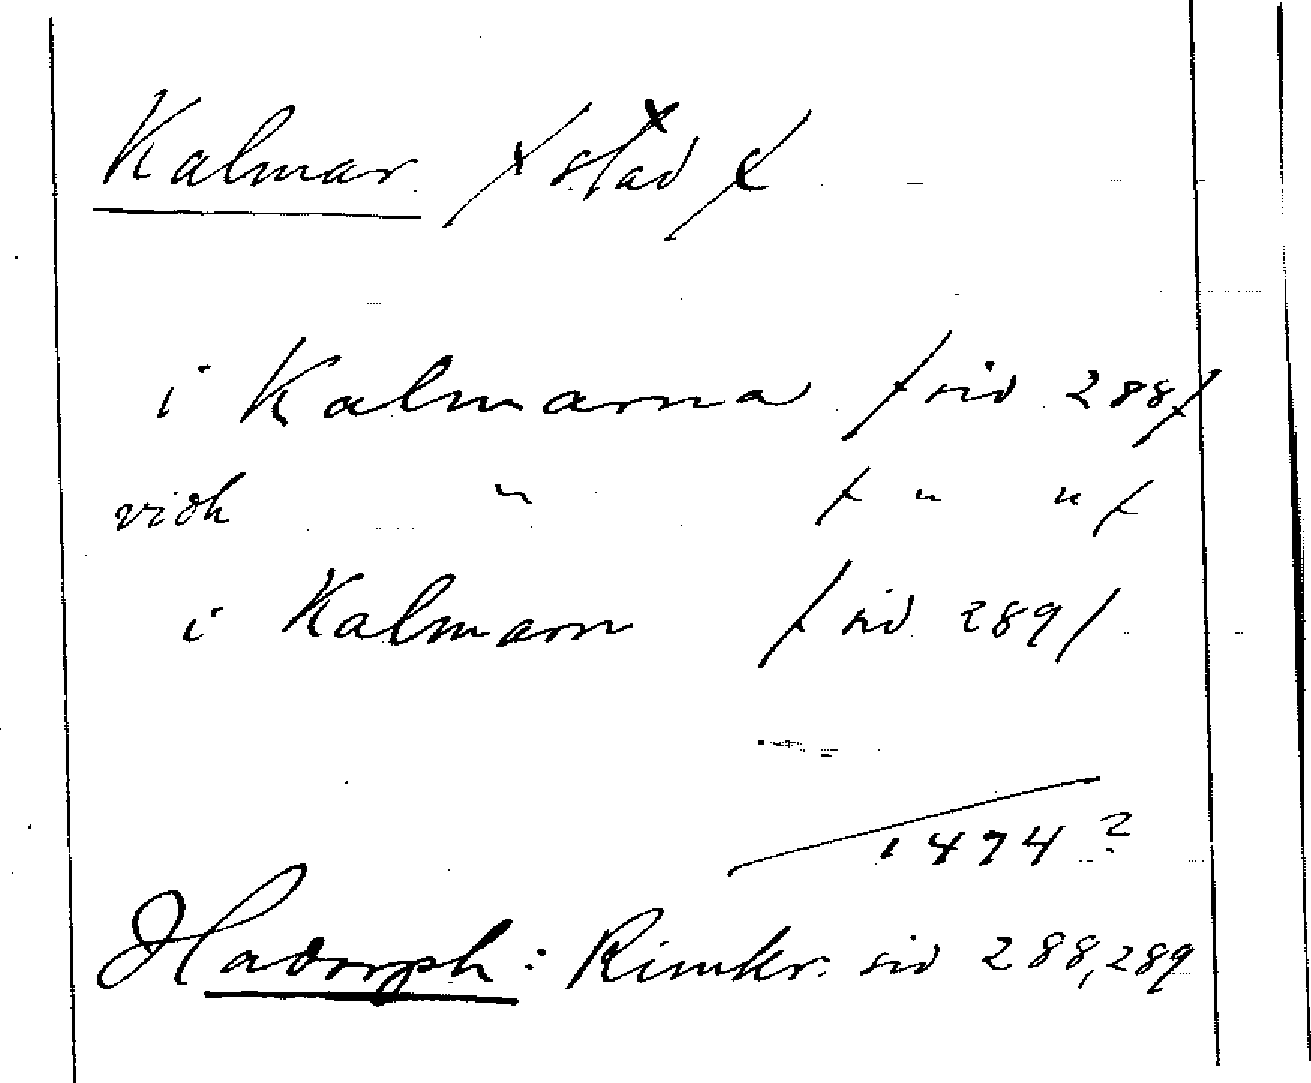 Kalmar /stad/
i Kalmarna /sid 288/
vidh " / " " /
i Kalmarn /sid 289/
1474?
Hadorph: Rimkr. sid 288, 289